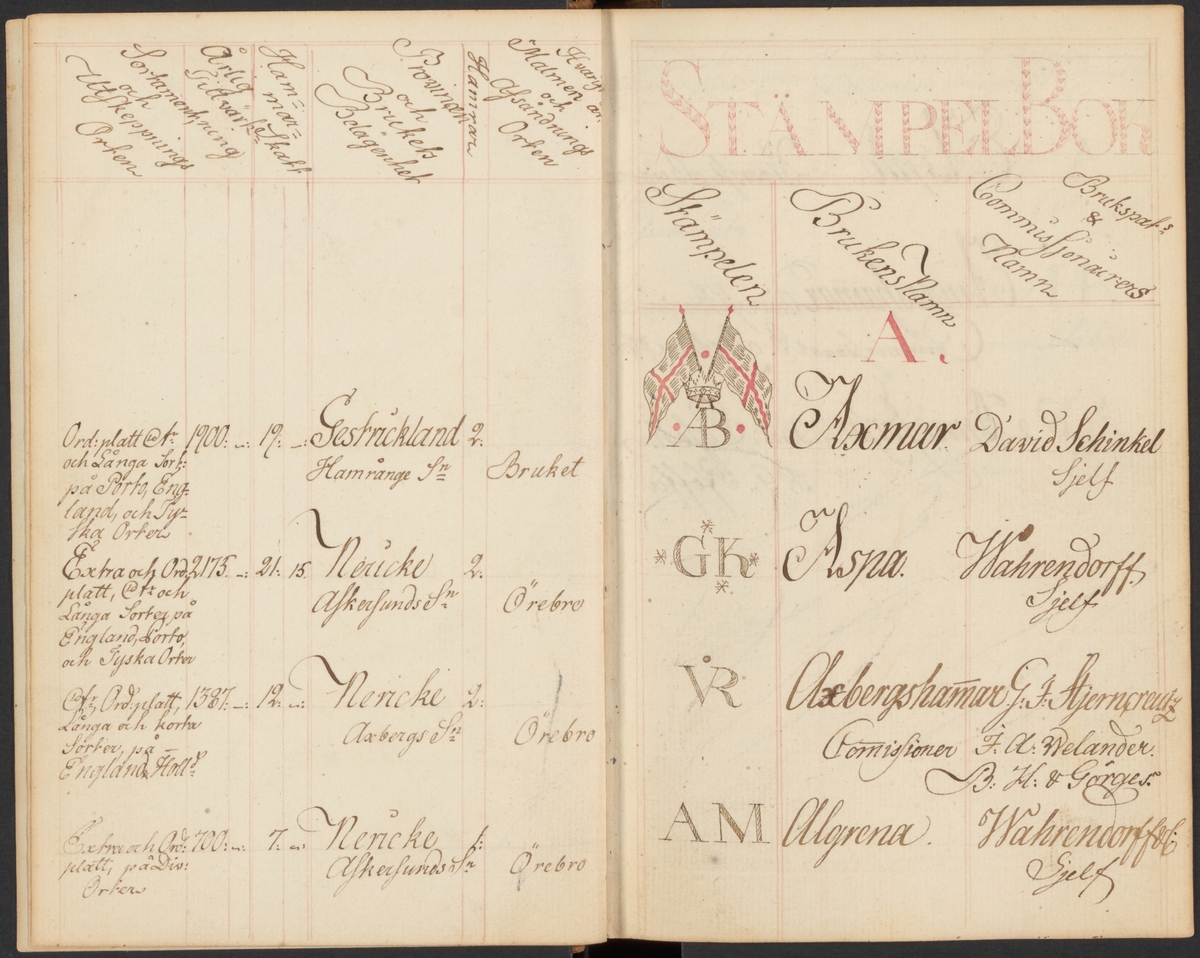 Sortament,
och
Utskeppnings
Orten
Årlig
Tillvärkning
Ham-
mar-
Skatt
Provincen
och
Brukets
Belägenhet
Hamrar
Hvarifrån
Malmen
och
Afsändnings
Orten
Ord: platt @tr 1900: –:– 19: –: Gestrickland 2:
och Långa Sort:
på Porto, Eng-
land, och Ty-
ska Orter
Hamrånge Sn
Bruket
Extra och Ord: 2175. –:– 21: 15. Nericke 2:
platt, @tr och
Långa Sorter, på
England, Porto,
och Tyska Orter
Askersunds Sn
Örebro
@tr, Ord: platt, 1387: –:– 12: –:– Nericke 2:
Långa och korta
Sorter, på
England & Holl:d
Axbergs Sn
Örebro
Extra och Ord: 700: –:– 7: –:– Nericke 1:
platt, på Div:
Orter
Askersunds Sn
Örebro
STÄMPELBOK
Stämpelen
Brukens Namn
Brukspat:s
&
Commissionairers
Namn
A.
ÅB
Axmar.
David Schinkel
Sjelf
GK
Aspa.
Wahrendorff
Sjelf
VR
Axbergsham̅ar G: F. Stjerncreutz
Com̅issioner F. A: Welander.
B: H: & Görges.
AM
Algrena.
Wahrendorff &C:
Sjelf